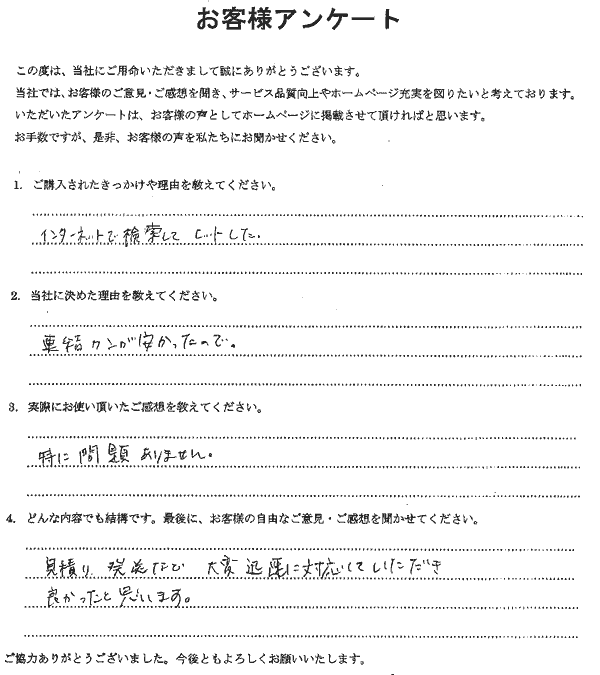 お客様アンケート
この度は、当社にご用命いただきまして誠にありがとうございます。
当社では、お客様のご意見・ご感想を聞き、サービス品質向上やホームページ充実を図りたいと考えております。
いただいたアンケートは、お客様の声としてホームページに掲載させて頂ければと思います。
お手数ですが、是非、お客様の声を私たちにお聞かせください。
1. ご購入されたきっかけや理由を教えてください。
インターネットで検索して ヒットした。
2. 当社に決めた理由を教えてください。
車結クンが安かったので。
3. 実際にお使い頂いたご感想を教えてください。
特に問題ありません。
4. どんな内容でも結構です。最後に、お客様の自由なご意見・ご感想を聞かせてください。
見積り 発送など 大変迅速に対応していただき
良かったと思います。
ご協力ありがとうございました。今後ともよろしくお願いいたします。